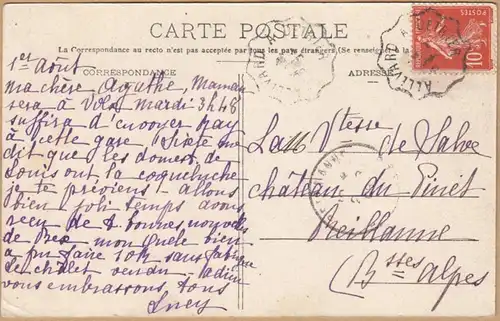 CARTE POSTALE
La Correspondance au recto n'est pas acceptée par tous les pays étrangers (Se renseigner à la
CORRESPONDANCE
ADRESSE
POSTES
10
ALLEVARD
ALLEVARD
1er Août
ma chère Agathe, Maman
sera à Volx mardi 3h48
suffira d'envoyer
à cette gare
dit que les domest. de
Louis ont la coqueluche
je te préviens. allons
bien. joli temps avons
reçu de t. bonnes nouvelles
de mon bien
a pu faire 10k sans fatigue
Le châlet vendu.
vous embrassons tous
Lucy
La Vtesse de Salve
Château du Pinet
Reillanne
(Bsses Alpes)